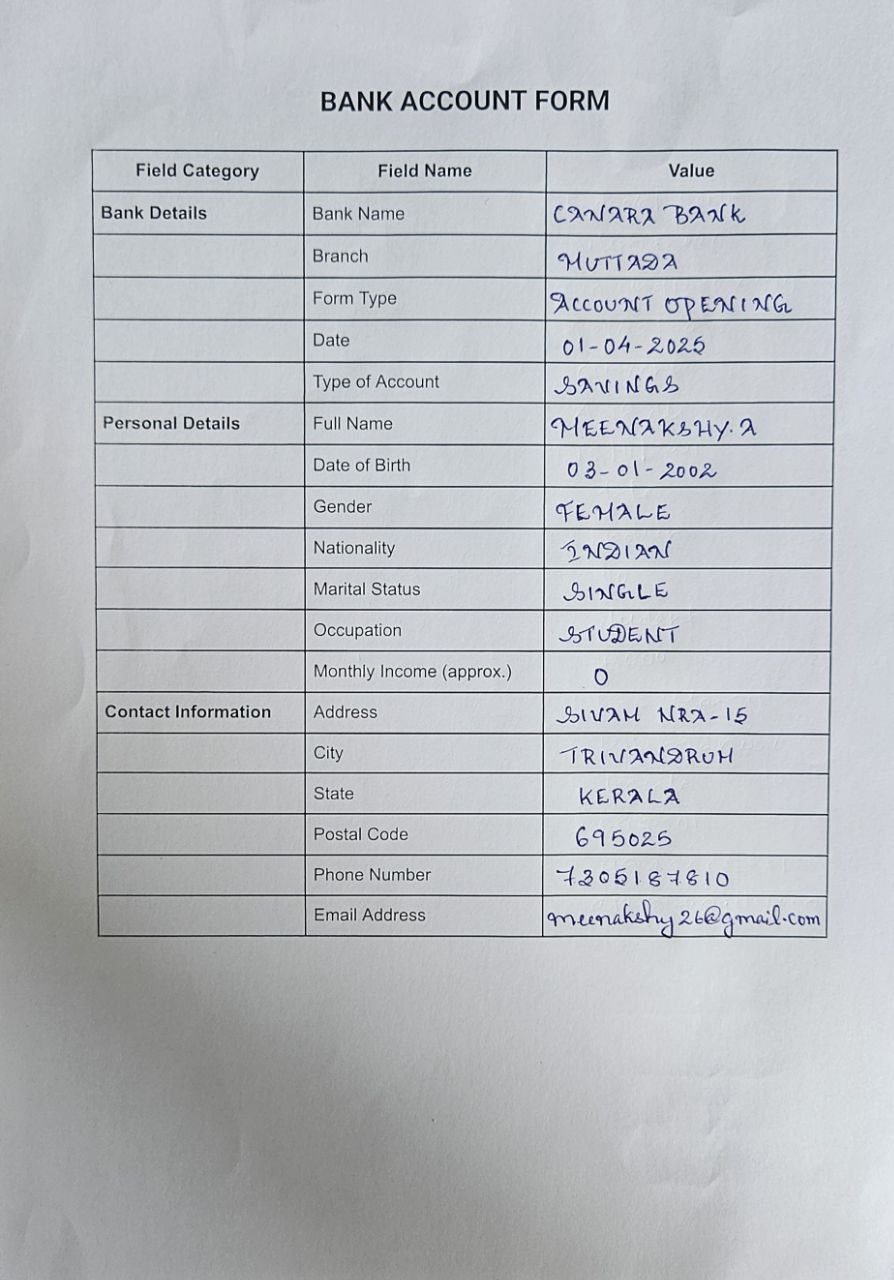 BANK ACCOUNT FORM
Field Category Field Name Value
Bank Details Bank Name CANARA BANK
Branch MUTTADA
Form Type ACCOUNT OPENING
Date 01-04-2025
Type of Account SAVINGS
Personal Details Full Name MEENAKSHY.A
Date of Birth 03-01-2002
Gender FEMALE
Nationality INDIAN
Marital Status SINGLE
Occupation STUDENT
Monthly Income (approx.) 0
Contact Information Address SIVAM NRA-15
City TRIVANDRUM
State KERALA
Postal Code 695025
Phone Number 7305187810
Email Address meenakshy26@gmail.com